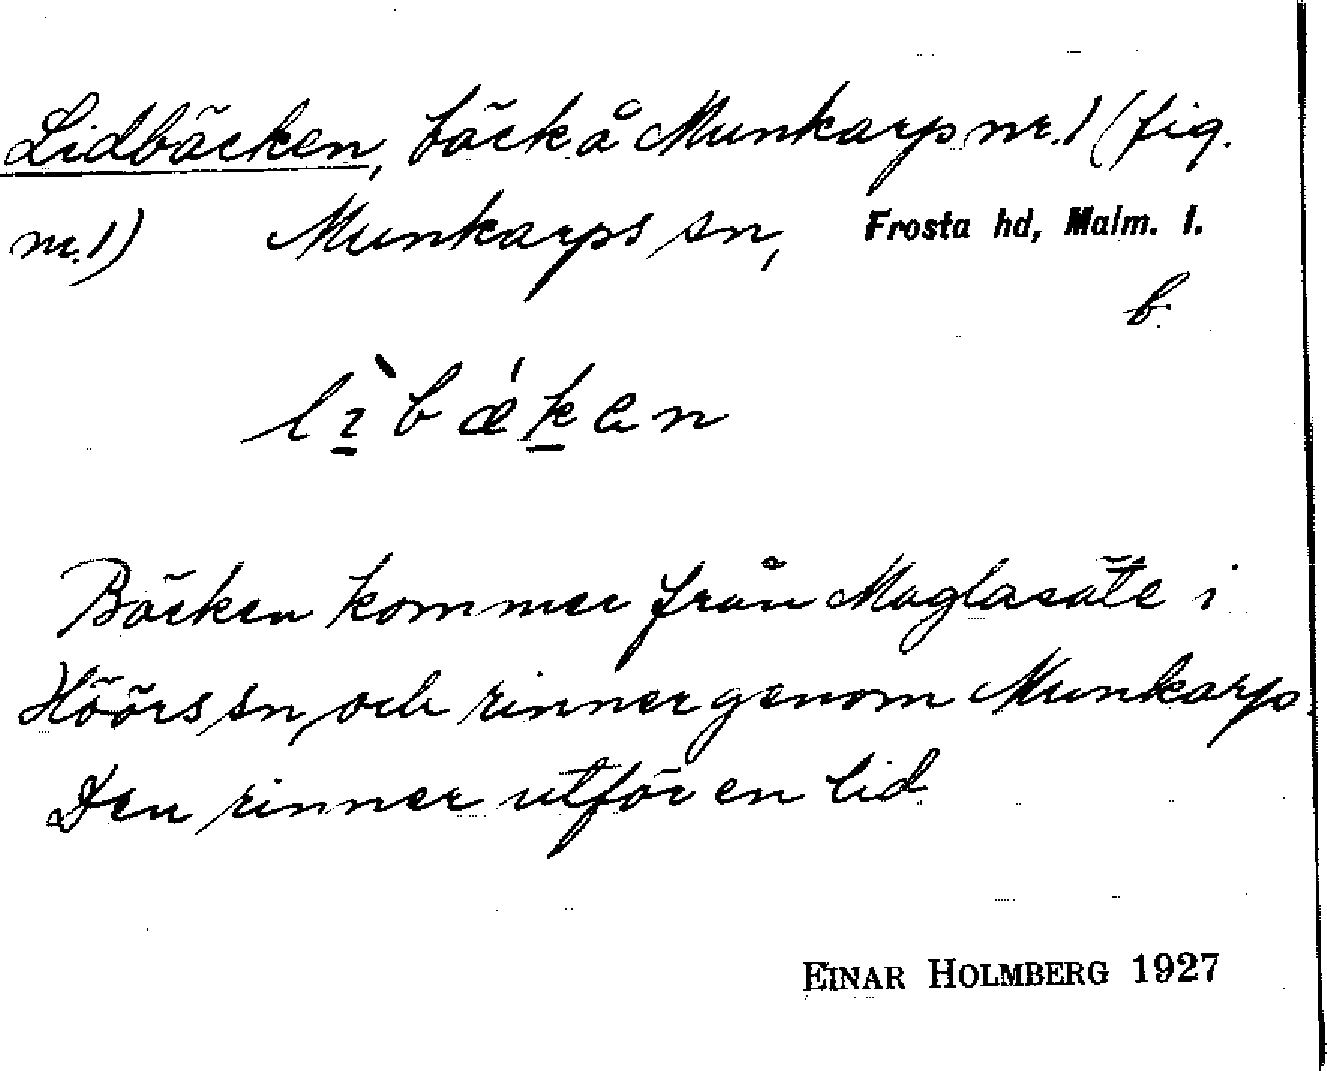 Lidbäcken, bäck å Munkarp nr. 1 (fig.
nr. 1) Munkarps sn, Frosta hd, Malm. l.
b.
lìbǽken
Bäcken kommer från Maglasäte i
Höörs sn, och rinner genom Munkarp.
Den rinner utför en lid.
EINAR HOLMBERG 1927